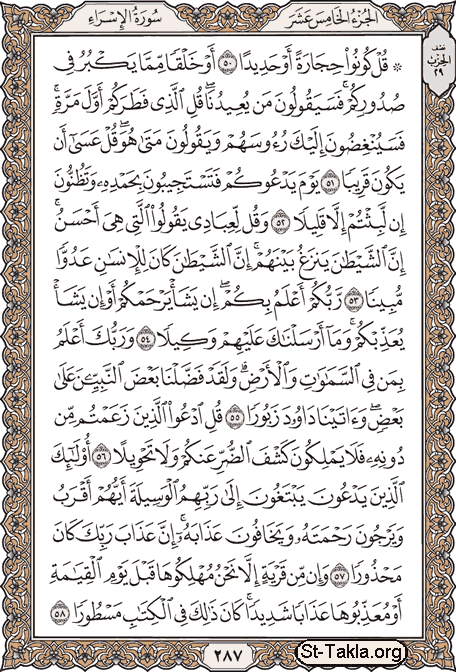 سُورَةُ الإِسْرَاءِ
الجُزْءُ الخَامِسَ عَشَرَ
نصف
الحزب
٢٩
۞ قُلْ كُونُوا۟ حِجَارَةً أَوْ حَدِيدًا ٥٠ أَوْ خَلْقًا مِّمَّا يَكْبُرُ فِى
صُدُورِكُمْ ۚ فَسَيَقُولُونَ مَن يُعِيدُنَا ۖ قُلِ ٱلَّذِى فَطَرَكُمْ أَوَّلَ مَرَّةٍ ۚ
فَسَيُنْغِضُونَ إِلَيْكَ رُءُوسَهُمْ وَيَقُولُونَ مَتَىٰ هُوَ ۖ قُلْ عَسَىٰٓ أَن
يَكُونَ قَرِيبًا ٥١ يَوْمَ يَدْعُوكُمْ فَتَسْتَجِيبُونَ بِحَمْدِهِۦ وَتَظُنُّونَ
إِن لَّبِثْتُمْ إِلَّا قَلِيلًا ٥٢ وَقُل لِّعِبَادِى يَقُولُوا۟ ٱلَّتِى هِىَ أَحْسَنُ ۚ
إِنَّ ٱلشَّيْطَٰنَ يَنزَغُ بَيْنَهُمْ ۚ إِنَّ ٱلشَّيْطَٰنَ كَانَ لِلْإِنسَٰنِ عَدُوًّا
مُّبِينًا ٥٣ رَّبُّكُمْ أَعْلَمُ بِكُمْ ۖ إِن يَشَأْ يَرْحَمْكُمْ أَوْ إِن يَشَأْ
يُعَذِّبْكُمْ ۚ وَمَآ أَرْسَلْنَٰكَ عَلَيْهِمْ وَكِيلًا ٥٤ وَرَبُّكَ أَعْلَمُ
بِمَن فِى ٱلسَّمَٰوَٰتِ وَٱلْأَرْضِ ۗ وَلَقَدْ فَضَّلْنَا بَعْضَ ٱلنَّبِيِّۦنَ عَلَىٰ
بَعْضٍ ۖ وَءَاتَيْنَا دَاوُۥدَ زَبُورًا ٥٥ قُلِ ٱدْعُوا۟ ٱلَّذِينَ زَعَمْتُم مِّن
دُونِهِۦ فَلَا يَمْلِكُونَ كَشْفَ ٱلضُّرِّ عَنكُمْ وَلَا تَحْوِيلًا ٥٦ أُو۟لَٰٓئِكَ
ٱلَّذِينَ يَدْعُونَ يَبْتَغُونَ إِلَىٰ رَبِّهِمُ ٱلْوَسِيلَةَ أَيُّهُمْ أَقْرَبُ
وَيَرْجُونَ رَحْمَتَهُۥ وَيَخَافُونَ عَذَابَهُۥٓ ۚ إِنَّ عَذَابَ رَبِّكَ كَانَ
مَحْذُورًا ٥٧ وَإِن مِّن قَرْيَةٍ إِلَّا نَحْنُ مُهْلِكُوهَا قَبْلَ يَوْمِ ٱلْقِيَٰمَةِ
أَوْ مُعَذِّبُوهَا عَذَابًا شَدِيدًا ۚ كَانَ ذَٰلِكَ فِى ٱلْكِتَٰبِ مَسْطُورًا ٥٨
٢٨٧
St-Takla.org